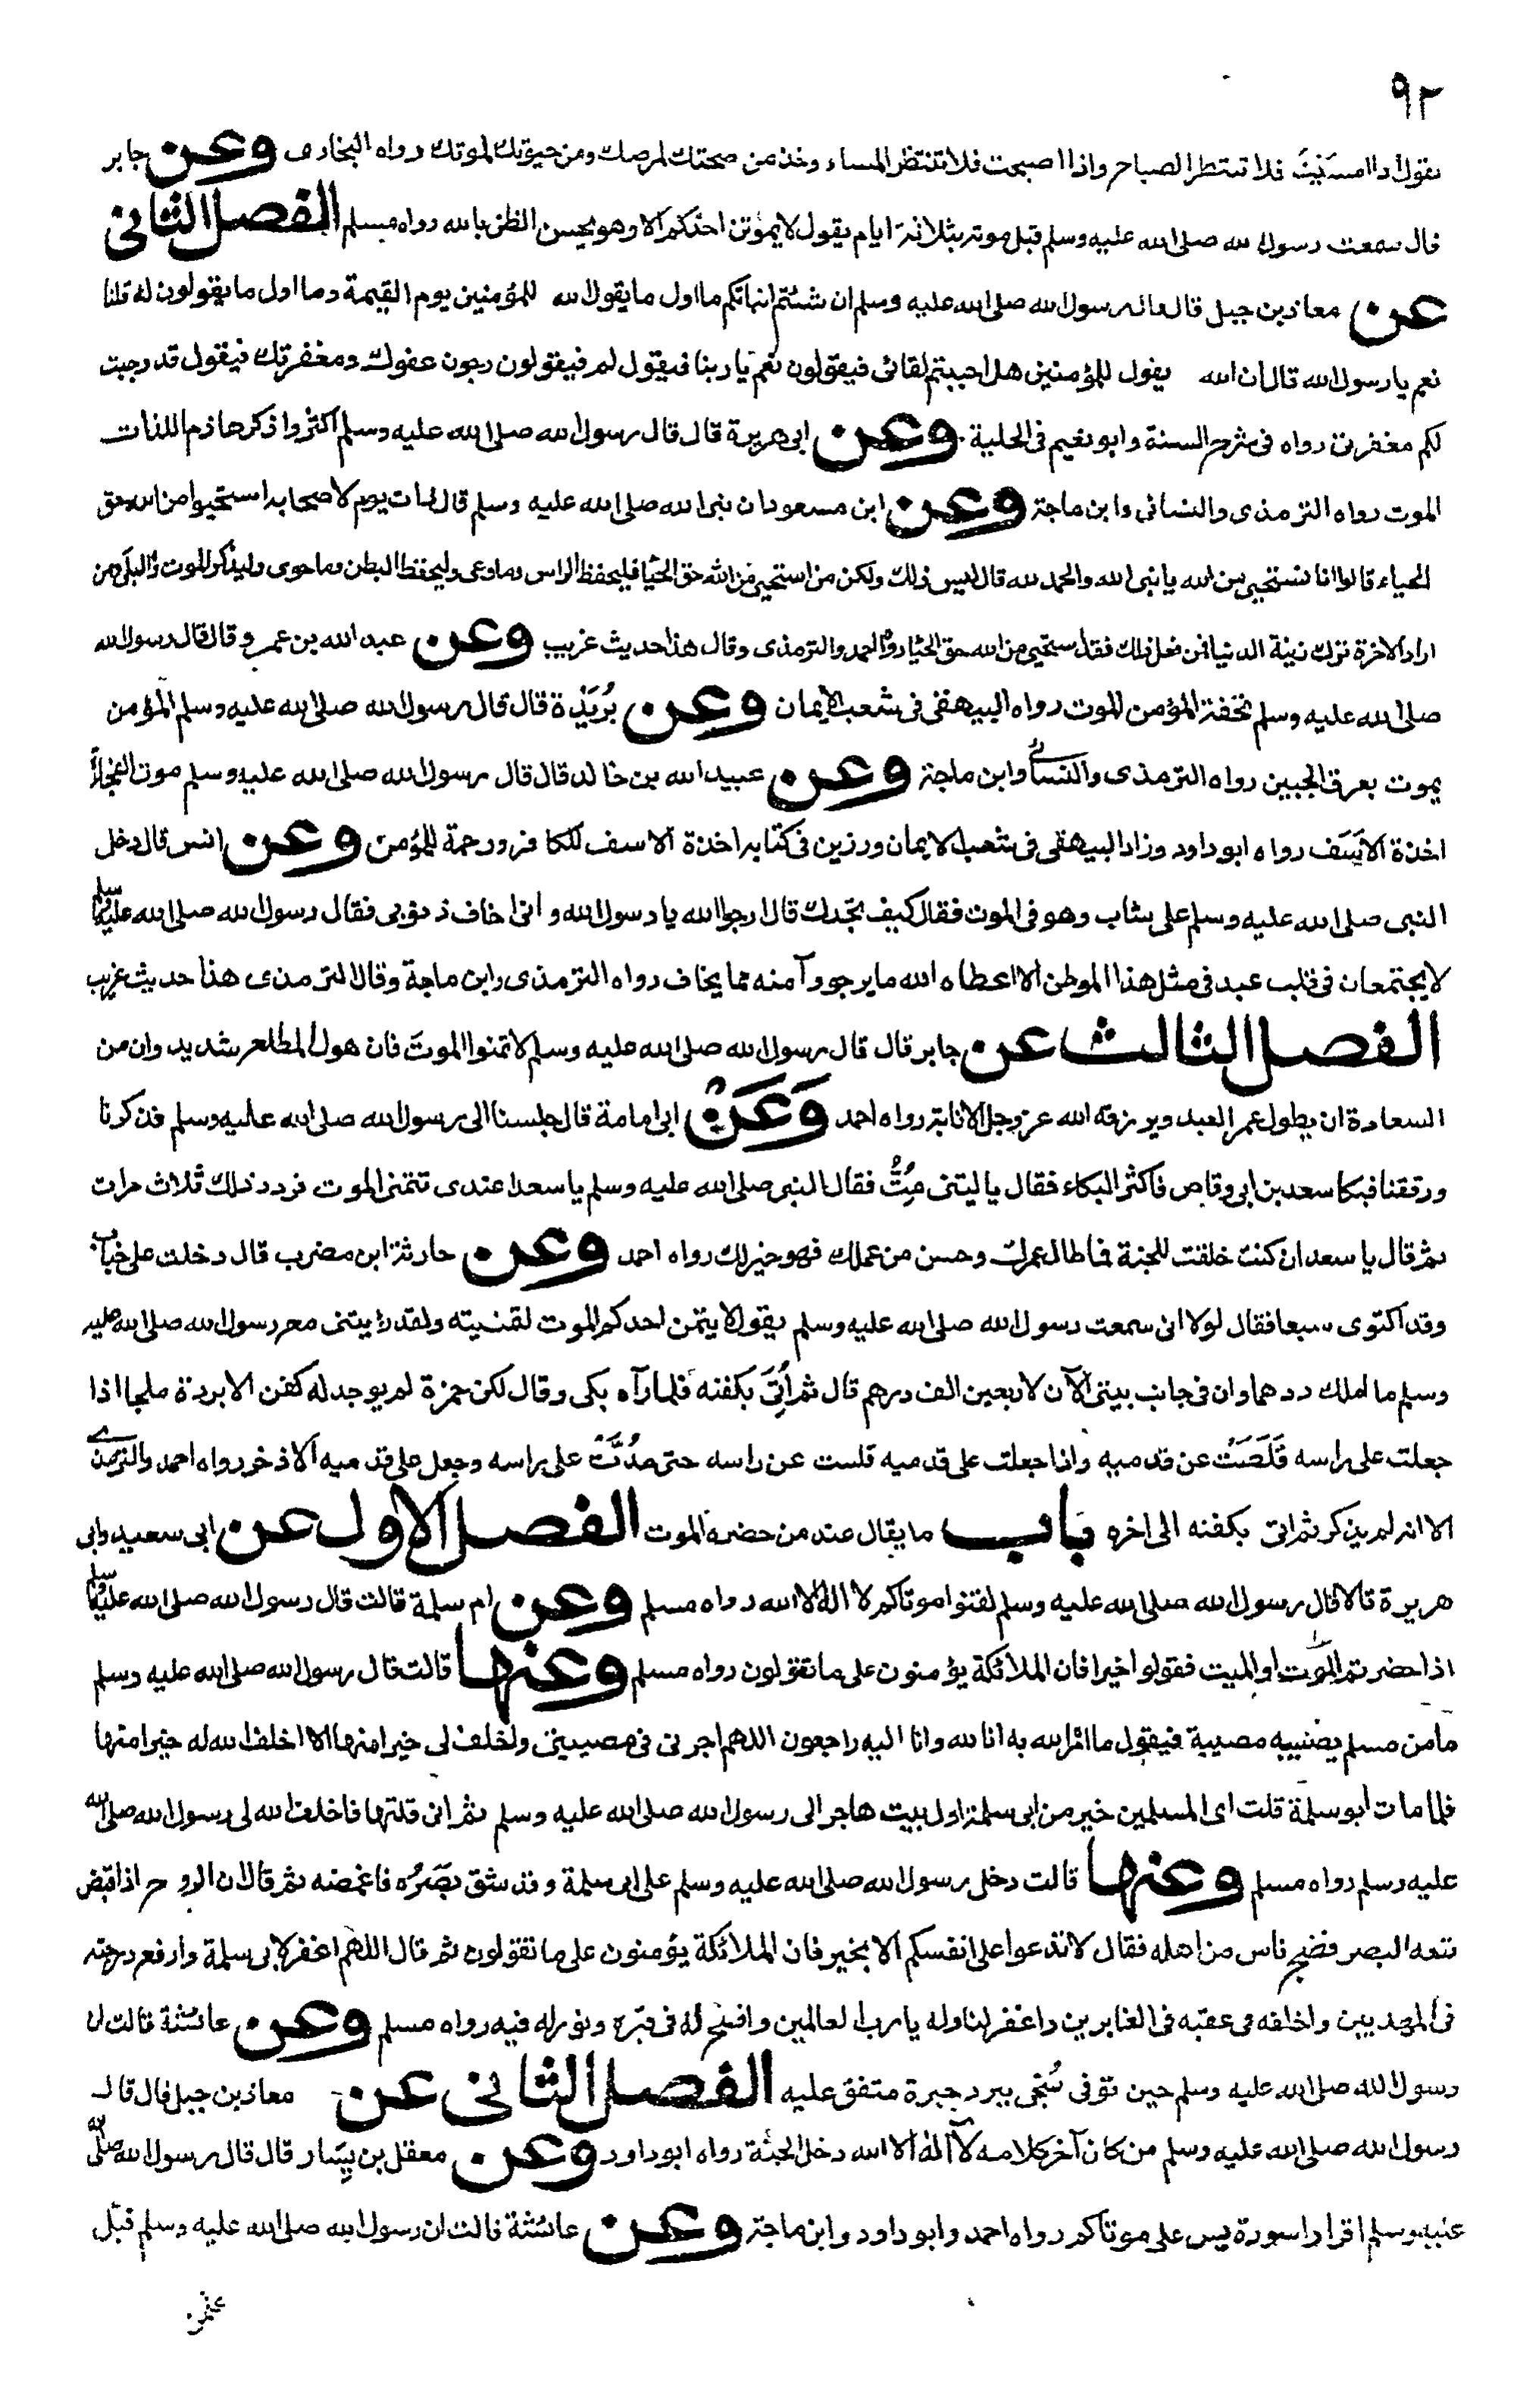 ٩٢
يقول اذا امسيت فلا تنتظر الصباح واذا اصبحت فلا تنتظر المساء وخذ من صحتك لمرضك ومن حيوتك لموتك رواه البخارى وعن جابر
قال سمعت رسول الله صلى الله عليه وسلم قبل موته بثلاثة ايام يقول لا يموتن احدكم الا وهو يحسن الظن بالله رواه مسلم الفصل الثانى
عن معاذ بن جبل قال قال رسول الله صلى الله عليه وسلم ان شئتم انباتكم ما اول ما يقول الله للمؤمنين يوم القيمة وما اول ما يقولون له قلنا
نعم يا رسول الله قال ان الله يقول للمؤمنين هل احببتم لقائى فيقولون نعم يا ربنا فيقول لم فيقولون رجون عفوك ومغفرتك فيقول قد وجبت
لكم مغفرتى رواه فى شرح السنة وابو نعيم فى الحلية وعن ابى هريرة قال قال رسول الله صلى الله عليه وسلم اكثروا ذكر هاذم اللذات
الموت رواه الترمذى والنسائى وابن ماجة وعن ابن مسعود ان نبى الله صلى الله عليه وسلم قال ذات يوم لاصحابه استحيوا من الله حق
الحياء قالوا انا نستحيى من الله يا نبى الله والحمد لله قال ليس ذلك ولكن من استحيى من الله حق الحيا فليحفظ الراس وما وعى وليحفظ البطن وما حوى وليذكر الموت والبلى ومن
اراد الاخرة ترك زينة الدنيا فمن فعل ذلك فقد استحيى من الله حق الحيا رواه احمد والترمذى وقال هذا حديث غريب وعن عبد الله بن عمرو قال قال رسول الله
صلى الله عليه وسلم تحفة المؤمن الموت رواه البيهقى فى شعب الايمان وعن بُرَيْدة قال قال رسول الله صلى الله عليه وسلم المؤمن
يموت بعرق الجبين رواه الترمذى والنسائى وابن ماجة وعن عبيد الله بن خالد قال قال رسول الله صلى الله عليه وسلم موت الفجاءة
اخذة الاَسَف رواه ابو داود وزاد البيهقى فى شعب الايمان ورزين فى كتابه اخذة الاسف للكافر ورحمة للمؤمن وعن انس قال دخل
النبى صلى الله عليه وسلم على شاب وهو فى الموت فقال كيف تجدك قال ارجو الله يا رسول الله وانى اخاف ذنوبى فقال رسول الله صلى الله عليه وسلم
لا يجتمعان فى قلب عبد فى مثل هذا الموطن الا اعطاه الله ما يرجو وآمنه مما يخاف رواه الترمذى وابن ماجة وقال الترمذى هذا حديث غريب
الفصل الثالث عن جابر قال قال رسول الله صلى الله عليه وسلم لا تمنوا الموتَ فان هول المطلع شديد وان من
السعادة ان يطول عمر العبد ويرزقه الله عز وجل الانابة رواه احمد وَعَنْ ابى امامة قال جلسنا الى رسول الله صلى الله عليه وسلم فذكرنا
ورققنا فبكا سعد بن ابى وقاص فاكثر البكاء فقال يا ليتنى مِتُّ فقال النبى صلى الله عليه وسلم يا سعد اعندى تتمنى الموت فردد ذلك ثلاث مرات
ثم قال يا سعد ان كنت خلقت للجنة فما طال عمرك وحسن من عملك فهو خير لك رواه احمد وعن حارثة ابن مضرب قال دخلت على خباب
وقد اكتوى سبعا فقال لولا انى سمعت رسول الله صلى الله عليه وسلم يقول لا يتمن احدكم الموت لتمنيته ولقد رايتنى مع رسول الله صلى الله عليه
وسلم ما املك درهما وان فى جانب بيتى الآن لاربعين الف درهم قال ثم اُتِىَ بكفنه فلما رآه بكى وقال لكن حمزة لم يوجد له كفن الا بردة ملحا اذا
جعلت على راسه قَلَصَتْ عن قدميه واذا جعلت على قدميه قلست عن راسه حتى مُدَّتْ على راسه وجعل على قدميه الاذخر رواه احمد والترمذى
الا انه لم يذكر ثم اتى بكفنه الى اخره بَاب ما يقال عند من حضره الموت الفصل الاول عن ابى سعيد وابى
هريرة قالا قال رسول الله صلى الله عليه وسلم لقنوا موتاكم لا اله الا الله رواه مسلم وعن ام سلمة قالت قال رسول الله صلى الله عليه وسلم
اذا حضرتم الموت او الميت فقولوا خيرا فان الملائكة يؤمنون على ما تقولون رواه مسلم وعنها قالت قال رسول الله صلى الله عليه وسلم
ما من مسلم يصيبه مصيبة فيقول ما امر الله به انا لله وانا اليه راجعون اللهم اجرنى فى مصيبتى واخلف لى خيرا منها الا اخلف الله له خيرا منها
فلما مات ابو سلمة قلت اى المسلمين خير من ابى سلمة اول بيت هاجر الى رسول الله صلى الله عليه وسلم ثم انى قلتها فاخلف الله لى رسول الله صلى الله
عليه وسلم رواه مسلم وعنها قالت دخل رسول الله صلى الله عليه وسلم على ابى سلمة وقد شق بَصَرُه فاغمضه ثم قال ان الروح اذا قبض
تبعه البصر فضج ناس من اهله فقال لا تدعوا على انفسكم الا بخير فان الملائكة يؤمنون على ما تقولون ثم قال اللهم اغفر لابى سلمة وارفع درجته
فى المهديين واخلفه فى عقبه فى الغابرين واغفر لنا وله يا رب العالمين وافسح له فى قبره ونور له فيه رواه مسلم وعن عائشة قالت ان
رسول الله صلى الله عليه وسلم حين توفى سُجّى ببرد حبرة متفق عليه الفصل الثانى عن معاذ بن جبل قال قال
رسول الله صلى الله عليه وسلم من كان آخر كلامه لا اله الا الله دخل الجنة رواه ابو داود وعن معقل بن يَسَار قال قال رسول الله صلى الله
عليه وسلم اقراوا سورة يس على موتاكم رواه احمد وابو داود وابن ماجة وعن عائشة قالت ان رسول الله صلى الله عليه وسلم قبّل
عثمن